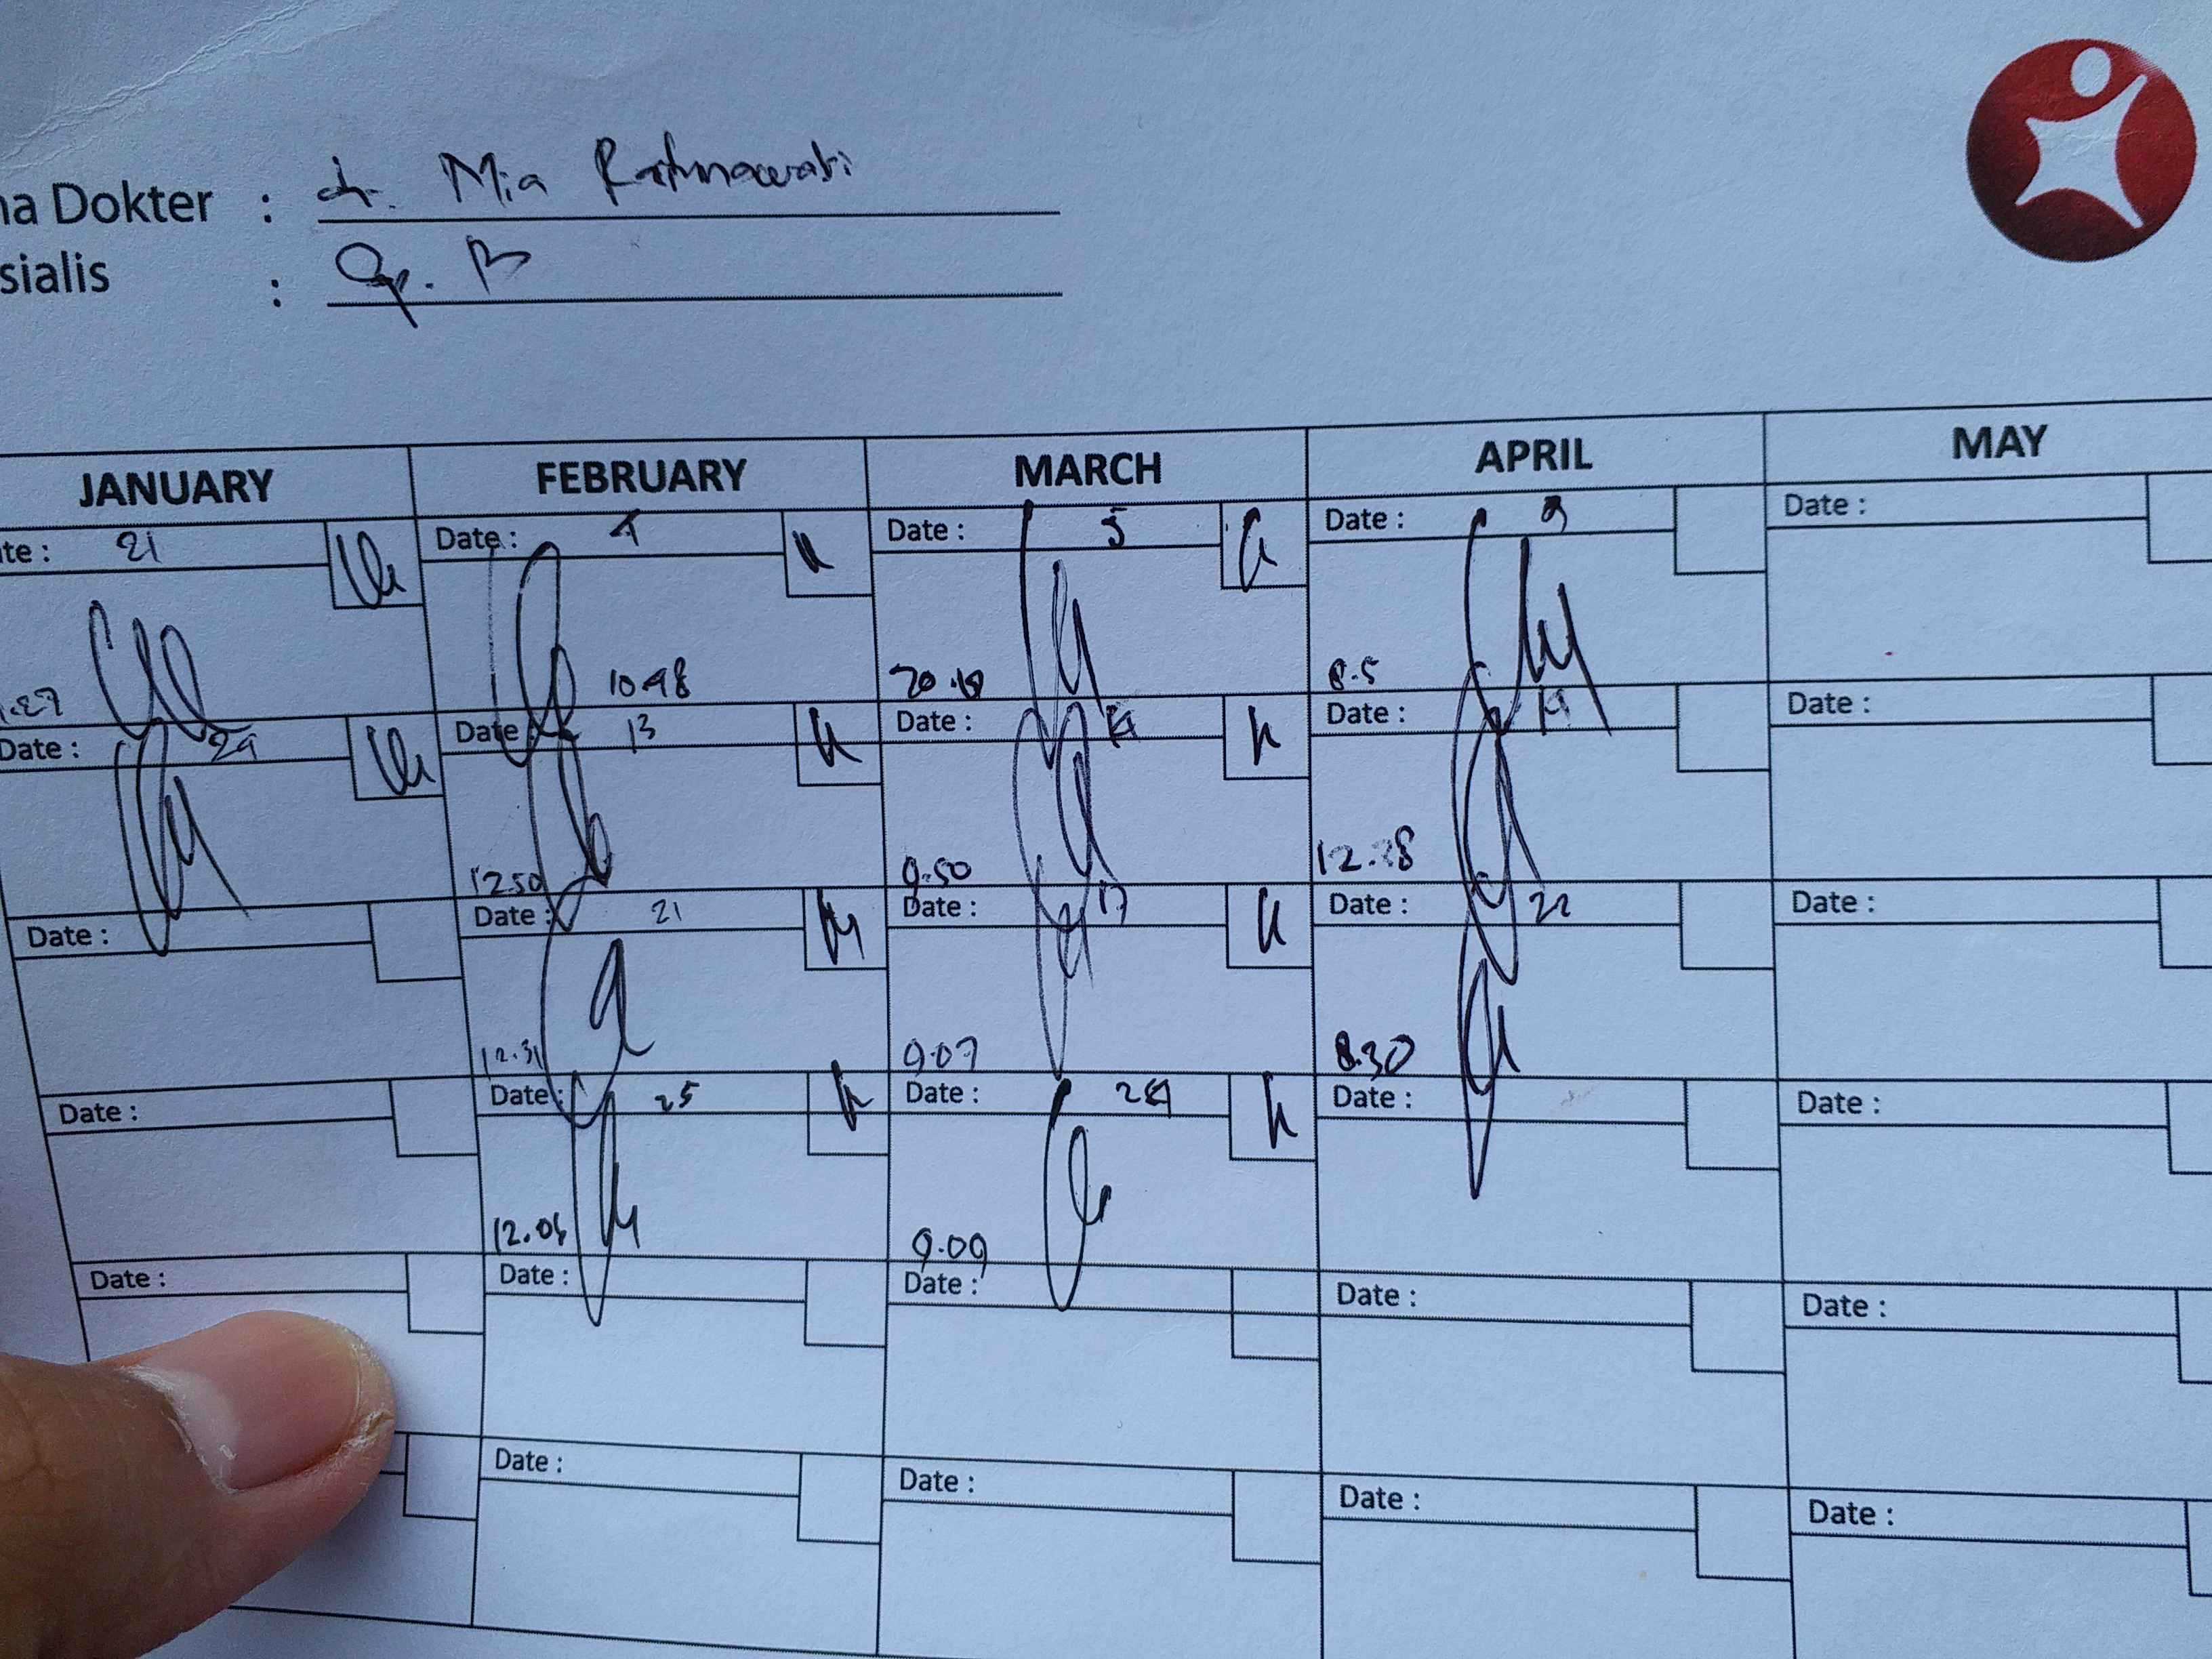 na Dokter : dr. Mia Ratnawati
sialis : Sp. B
JANUARY FEBRUARY MARCH APRIL MAY
te : 21 Date : 4 Date : 5 Date : 9 Date :
.27 10.48 8.5
Date : 29 Date : 13 Date : Date : Date :
12.50 9.50 12.28
Date : Date : 21 Date : 17 Date : 22 Date :
12.31 9.07 8.30
Date : Date : 25 Date : 24 Date : Date :
9.09
Date : Date : Date : Date : Date :
Date : Date : Date : Date :